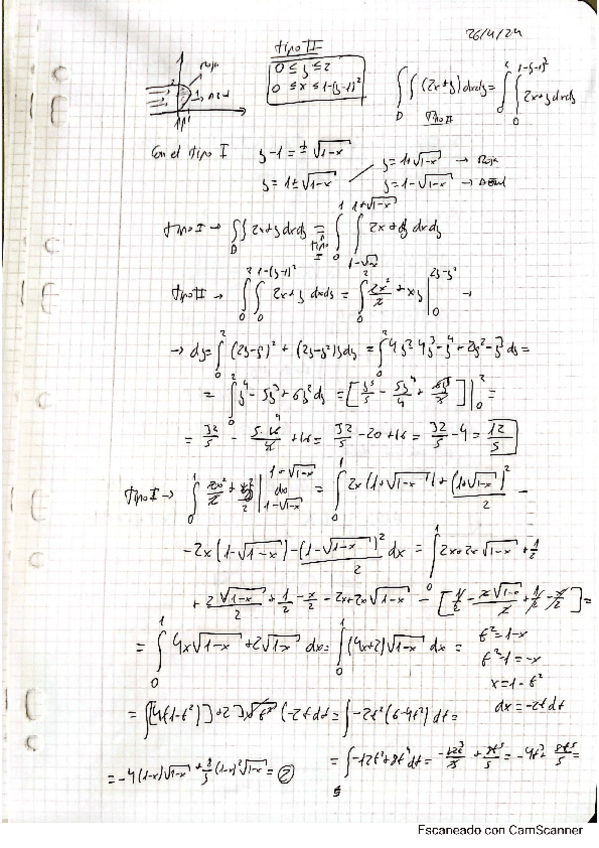 26/4/24
tipo II
0 ≤ y ≤ 2
0 ≤ x ≤ 1-(y-1)²
∫∫_D (2x+y)dxdy = ∫_0^2 ∫_0^{1-(y-1)²} 2x+y dxdy
Tipo II
Con el tipo I y-1 = ±√(1-x)
y = 1±√(1-x) y = 1+√(1-x) → Roja
y = 1-√(1-x) →
tipo I → ∫∫_D 2x+y dxdy = ∫_0^1 ∫_{1-√(1-x)}^{1+√(1-x)} 2x+y dxdy
tipo II → ∫_0^2 ∫_0^{1-(y-1)²} 2x+y dxdy = ∫_0^2 2x²/2 + xy |_0^{2y-y²} →
→ dy = ∫_0^2 (2y-y²)² + (2y-y²)y dy = ∫_0^2 4y² 4y³ - y⁴ + 2y² - y³ dy =
= ∫_0^2 y⁴ - 5y³ + 6y² dy = [y⁵/5 - 5y⁴/4 + 6y³/3] |_0^2 =
= 32/5 - 5·16/4 + 16 = 32/5 - 20 + 16 = 32/5 - 4 = 12/5
tipo I → ∫_0^1 + |_{1-√(1-x)}^{1+√(1-x)} dx = ∫_0^1 2x(1+√(1-x)) + (1+√(1-x))²/2 -
-2x(1-√(1-x)) - (1-√(1-x))²/2 dx = ∫_0^1 2x+2x√(1-x) + 1/2
+ 2√(1-x)/2 + 1/2 - x/2 - 2x+2x√(1-x) - [1/2 - 2√(1-x)/2 + 1/2 - x/2] =
= ∫_0^1 4x√(1-x) + 2√(1-x) dx = ∫_0^1 (4x+2)√(1-x) dx =
t² = 1-x
t²-1 = -x
x = 1-t²
dx = -2t dt
= ∫[4(1-t²)]+2]√t² (-2t dt = ∫-2t²(6-4t²) dt =
= ∫-12t²+8t⁴ dt = -12t³/3 + 8t⁵/5 = -4t³ + 8t⁵/5 =
= -4(1-x)√(1-x) + 8/5 (1-x)²√(1-x) = ②
Escaneado con CamScanner